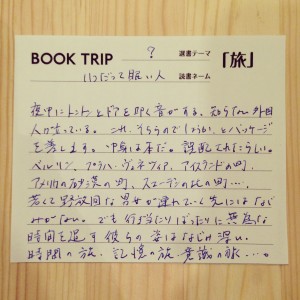 BOOK TRIP ? 選書テーマ 「旅」
いつだって眠い人 読書ネーム
夜中にトントンとドアを叩く音がする。知らない外国
人が立っている。これ、そちらのでしょうか、とパッケージ
を差し出す。中身は本だ。誤配されたらしい。
ベルリン、プラハ、ヴェネツィア、アイスランドの町、
アメリカの砂漠の町、スコーネの町…、
若くて野放図な男女が連れていく先にはなじ
みがない。でも行き当たりばったりに無為な
時間を過す彼らの姿はなじみ深い。
時間の旅、記憶の旅、意識の旅…。